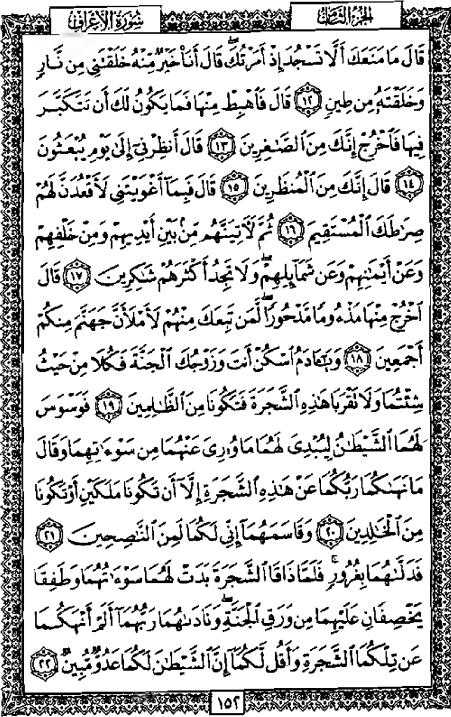 الجزء الثامن
سورة الأعراف
قَالَ مَا مَنَعَكَ أَلَّا تَسْجُدَ إِذْ أَمَرْتُكَ ۖ قَالَ أَنَا۠ خَيْرٌ مِّنْهُ خَلَقْتَنِى مِن نَّارٍ
وَخَلَقْتَهُۥ مِن طِينٍ ﴿١٢﴾ قَالَ فَٱهْبِطْ مِنْهَا فَمَا يَكُونُ لَكَ أَن تَتَكَبَّرَ
فِيهَا فَٱخْرُجْ إِنَّكَ مِنَ ٱلصَّـٰغِرِينَ ﴿١٣﴾ قَالَ أَنظِرْنِىٓ إِلَىٰ يَوْمِ يُبْعَثُونَ
﴿١٤﴾ قَالَ إِنَّكَ مِنَ ٱلْمُنظَرِينَ ﴿١٥﴾ قَالَ فَبِمَآ أَغْوَيْتَنِى لَأَقْعُدَنَّ لَهُمْ
صِرَٰطَكَ ٱلْمُسْتَقِيمَ ﴿١٦﴾ ثُمَّ لَـَٔاتِيَنَّهُم مِّنۢ بَيْنِ أَيْدِيهِمْ وَمِنْ خَلْفِهِمْ
وَعَنْ أَيْمَـٰنِهِمْ وَعَن شَمَآئِلِهِمْ ۖ وَلَا تَجِدُ أَكْثَرَهُمْ شَـٰكِرِينَ ﴿١٧﴾ قَالَ
ٱخْرُجْ مِنْهَا مَذْءُومًا مَّدْحُورًا ۖ لَّمَن تَبِعَكَ مِنْهُمْ لَأَمْلَأَنَّ جَهَنَّمَ مِنكُمْ
أَجْمَعِينَ ﴿١٨﴾ وَيَـٰٓـَٔادَمُ ٱسْكُنْ أَنتَ وَزَوْجُكَ ٱلْجَنَّةَ فَكُلَا مِنْ حَيْثُ
شِئْتُمَا وَلَا تَقْرَبَا هَـٰذِهِ ٱلشَّجَرَةَ فَتَكُونَا مِنَ ٱلظَّـٰلِمِينَ ﴿١٩﴾ فَوَسْوَسَ
لَهُمَا ٱلشَّيْطَـٰنُ لِيُبْدِىَ لَهُمَا مَا وُۥرِىَ عَنْهُمَا مِن سَوْءَٰتِهِمَا وَقَالَ
مَا نَهَىٰكُمَا رَبُّكُمَا عَنْ هَـٰذِهِ ٱلشَّجَرَةِ إِلَّآ أَن تَكُونَا مَلَكَيْنِ أَوْ تَكُونَا
مِنَ ٱلْخَـٰلِدِينَ ﴿٢٠﴾ وَقَاسَمَهُمَآ إِنِّى لَكُمَا لَمِنَ ٱلنَّـٰصِحِينَ ﴿٢١﴾
فَدَلَّىٰهُمَا بِغُرُورٍ ۚ فَلَمَّا ذَاقَا ٱلشَّجَرَةَ بَدَتْ لَهُمَا سَوْءَٰتُهُمَا وَطَفِقَا
يَخْصِفَانِ عَلَيْهِمَا مِن وَرَقِ ٱلْجَنَّةِ ۖ وَنَادَىٰهُمَا رَبُّهُمَآ أَلَمْ أَنْهَكُمَا
عَن تِلْكُمَا ٱلشَّجَرَةِ وَأَقُل لَّكُمَآ إِنَّ ٱلشَّيْطَـٰنَ لَكُمَا عَدُوٌّ مُّبِينٌ ﴿٢٢﴾
١٥٢